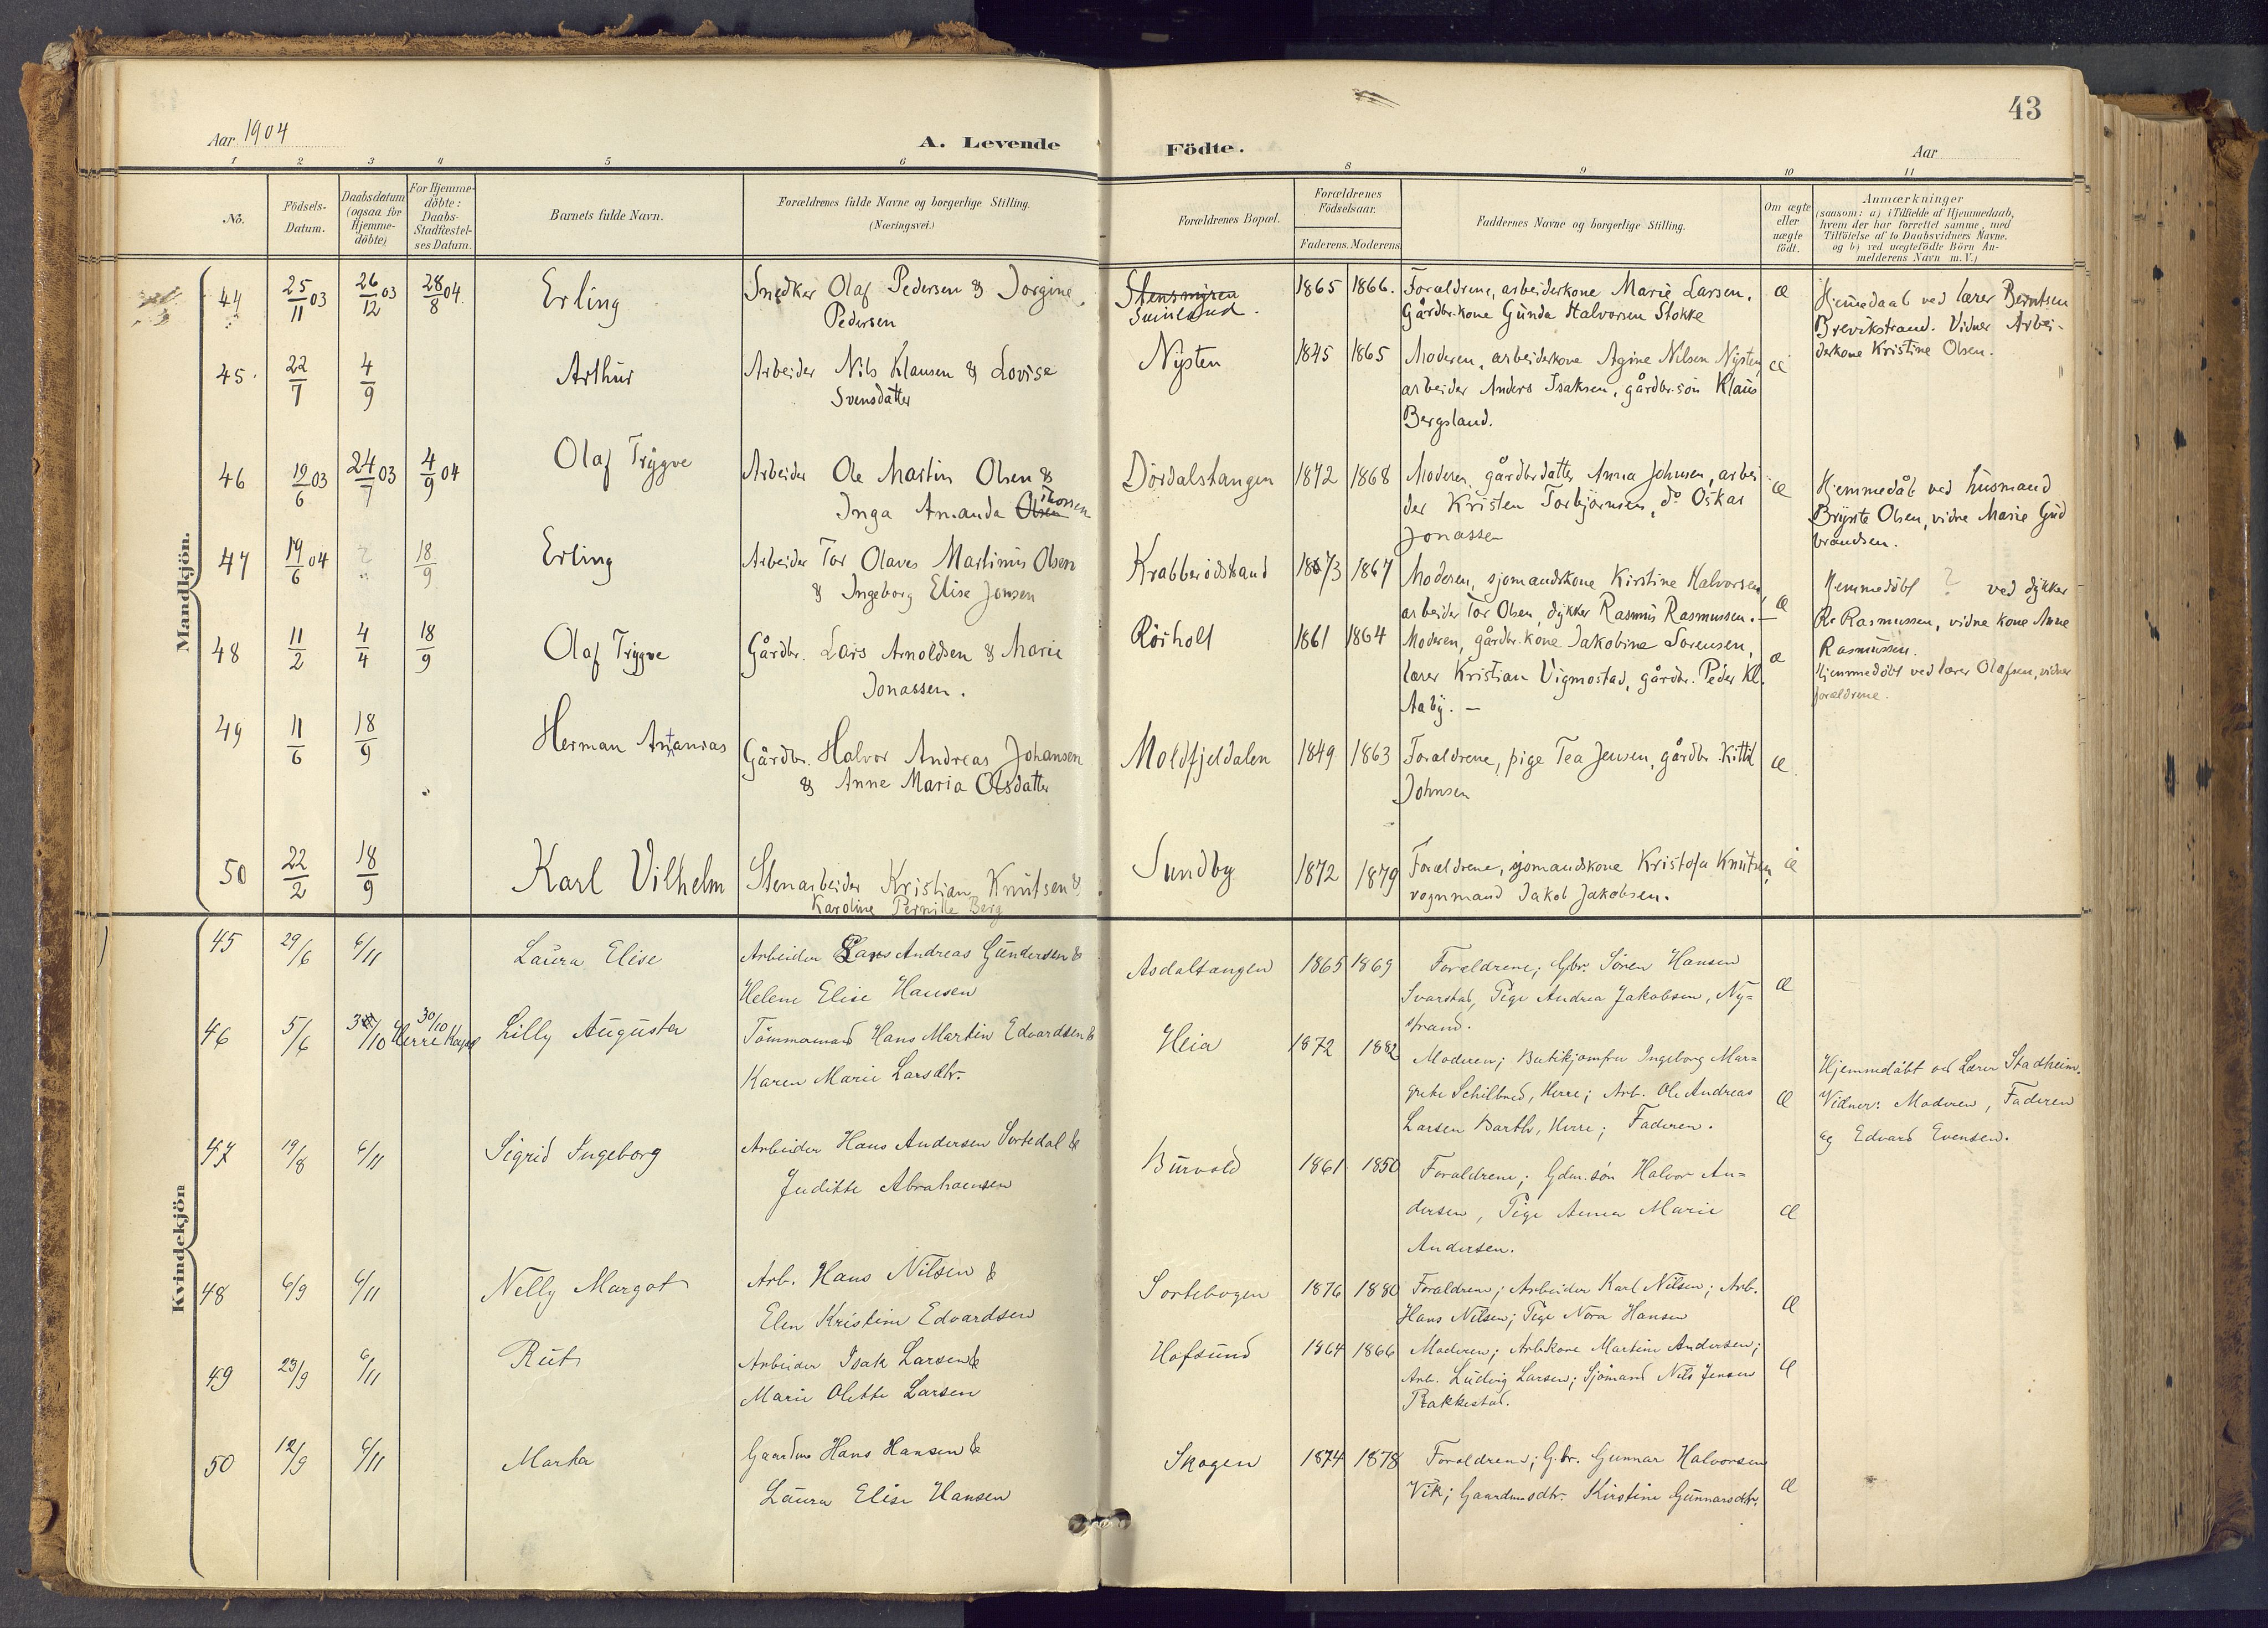 43
Aar 1904
A. Levende Födte.
Aar
1 2 3 4 5 6 8 9 10 11
No.
Födsels-Datum.
Daabsdatum (ogsaa for Hjemme-döbte)
For Hjemme-döbte: Daabs-Stadfæstel-ses Datum.
Barnets fulde Navn.
Forældrenes fulde Navne og borgerlige Stilling. (Næringsvei.)
Forældrenes Bopæl.
Forældrenes Födselsaar.
Faderens. Moderens.
Faddernes Navne og borgerlige Stilling.
Om ægte eller uægte födt.
Anmærkninger
(saasom: a) i Tilfælde af Hjemmedaab,
hvem der har forrettet samme, med
Tilföielse af to Daabsvidners Navne,
og b) ved uægtefödte Börn An-
melderens Navn m. V.)
Mandkjön.
44 25/11 03 26/12 03 28/8 04. Erling
Snedker Olaf Pedersen & Jorgine
Pedersen
Stensmyren
1865 1866.
Forældrene, arbeiderkone Marie Larsen,
Gårdbr.kone Gunda Halvorsen Stokke
æ
Hjemmedaab ved lærer Berntsen
Brevikstrand. Vidner Arbei-
derkone Kristine Olsen.
45. 22/7 4/9 Arthur
Arbeider Nils Klausen & Lovise
Svensdatter
Nysten
1845 1865
Moderen, arbeiderkone Agine Nilsen Nysten,
arbeider Anders Isaksen, gårdbr.søn Klaus
Bergsland.
æ
46 19/6 03 24/7 03 4/9 04 Olaf Trygve
Arbeider Ole Martin Olsen &
Inga Amanda Olsen Thorsen
Dördalstangen
1872 1868
Moderen, gårdbrdatter Anna Johnsen, arbei
der Kristen Torbjørnsen, do Oskar
Jonassen
æ
Hjemmedåb ved husmand
Brynte Olsen, vidne Marie Gud
brandsen.
47 19/6 04 ? 18/9 Erling
Arbeider Tor Olaves Martinus Olsen
& Ingeborg Elise Jonsen
Krabberödstrand
1873 1867
Moderen, sjomandskone Kirstine Halvorsen,
arbeider Tor Olsen, dykker Rasmus Rasmussen. —
æ
Hemmedöbt ? ved dykker
R. Rasmussen, vidne kone Anne
Rasmussen.
48 11/2 4/4 18/9 Olaf Trygve
Gårdbr. Lars Arnoldsen & Marie
Jonassen.
Rörholt
1861 1864
Moderen, gårdbr.kone Jakobine Sorensen,
lærer Kristian Vigmostad, gårdbr. Peder Kl.
Aaby. —
æ
Hjemmedöbt ved lærer Olafsen, vidner
forældrene.
49 11/6 18/9 Herman Antanias
Gårdbr. Halvor Andreas Johansen
& Anne Maria Olsdatter
Moldfjeldalen
1849 1863
Forældrene, pige Tea Jensen, gårdbr. Kittil
Johnsen
æ
50 22/2 18/9 Karl Vilhelm
Stenarbeider Kristian Knutsen &
Karoline Pernille Berg
Sundby
1872 1879
Forældrene, sjomandskone Kristofa Knutsen,
vognmand Jakob Jakobsen.
æ
Kvindekjön
45 29/6 6/11 Laura Elise
Arbeider Lars Andreas Gundersen &
Helene Elise Hansen
Asdaltangen
1865 1869
Forældrene; Gbr. Sören Hansen
Svarstad, Pige Andrea Jakobsen, Ny=
strand.
æ
46 5/6 30/10 Herre Kapel Lilly Augusta
Tömmermand Hans Martin Edvardsen &
Karen Marie Larsdtr.
Heia
1872 1882
Moderen; Butikjomfru Ingeborg Mar=
grete Schilbred, Herre; Arb. Ole Andreas
Larsen Barth, Herre; Faderen.
æ
Hjemmedöbt ved Lærer Stadheim.
Vidner: Moderen, Faderen
og Edvard Evensen.
47 19/8 6/11 Sigrid Ingeborg
Arbeider Hans Andersen Sortedal &
Juditte Abrahamsen
Burvold
1861 1850
Forældrene; Gdm.sön Halvor An=
dersen, Pige Anna Marie
Andersen.
æ
48 6/9 6/11 Nelly Margot
Arb. Hans Nilsen &
Elen Kristine Edvardsen
Sortebogen
1876 1880
Forældrene; Arbeider Karl Nilsen; Arb.
Hans Nilsen; Pige Nora Hansen
æ
49 23/9 6/11 Rut
Arbeider Isak Larsen &
Marie Olette Larsen
Hafsund
1864 1866
Moderen; Arb.kone Martine Andersen;
Arb. Ludvig Larsen; Sjömand Nils Jensen
Rakkestad.
æ
50 12/9 6/11 Marta
Gaardm. Hans Hansen &
Laura Elise Hansen
Skogen
1874 1878
Forældrene; G.br. Gunnar Halvorsen
Vik; Gaardmsdtr. Kirstine Gunnarsdtr.
æ